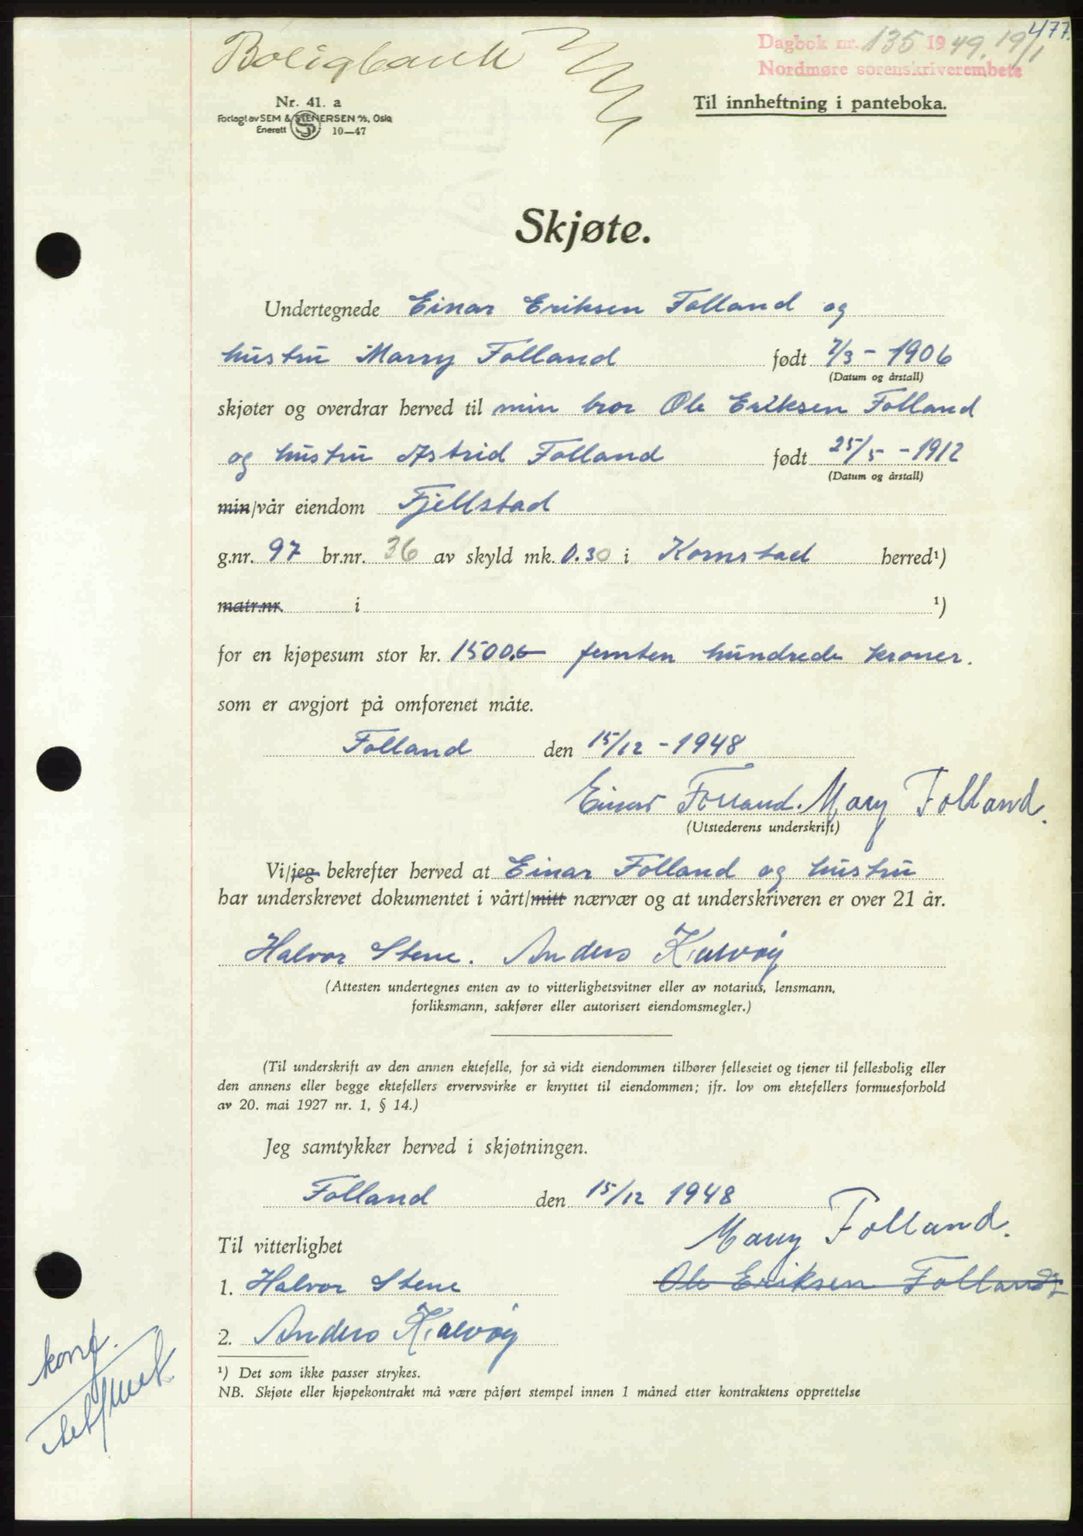 477.
Boligbank
Dagbok nr. 135 1949. 19/1
Nordmøre sorenskriverembete
Nr. 41. a
Forlagt av SEM & STENERSEN A/S, Oslo
Enerett S 10—47
Til innheftning i panteboka.
Skjøte.
Undertegnede Einar Eriksen Folland og
hustru Marry Folland født 7/3 - 1906
(Datum og årstall)
skjøter og overdrar herved til min bror Ole Eriksen Folland
og hustru Astrid Folland født 25/5 - 1912
(Datum og årstall)
min/vår eiendom Fjellstad
g.nr. 97 br.nr. 36 av skyld mk. 0.30 i Kornstad herred¹)
matr.nr. i ¹)
for en kjøpesum stor kr. 1500.- femten hundrede kroner.
som er avgjort på omforenet måte.
Folland den 15/12 - 1948
Einar Folland. Mary Folland.
(Utstederens underskrift)
Vi/jeg bekrefter herved at Einar Folland og hustru
har underskrevet dokumentet i vårt/mitt nærvær og at underskriveren er over 21 år.
Halvor Stene. Anders Kalvøy
(Attesten undertegnes enten av to vitterlighetsvitner eller av notarius, lensmann,
forliksmann, sakfører eller autorisert eiendomsmegler.)
(Til underskrift av den annen ektefelle, for så vidt eiendommen tilhører felleseiet og tjener til fellesbolig eller
den annens eller begge ektefellers ervervsvirke er knyttet til eiendommen; jfr. lov om ektefellers formuesforhold
av 20. mai 1927 nr. 1, § 14.)
Jeg samtykker herved i skjøtningen.
Folland den 15/12 1948
Mary Folland.
Til vitterlighet
1. Halvor Stene Ole Eriksen Folland
2. Anders Kalvøy
konf.
¹) Det som ikke passer strykes.
NB. Skjøte eller kjøpekontrakt må være påført stempel innen 1 måned etter kontraktens opprettelse